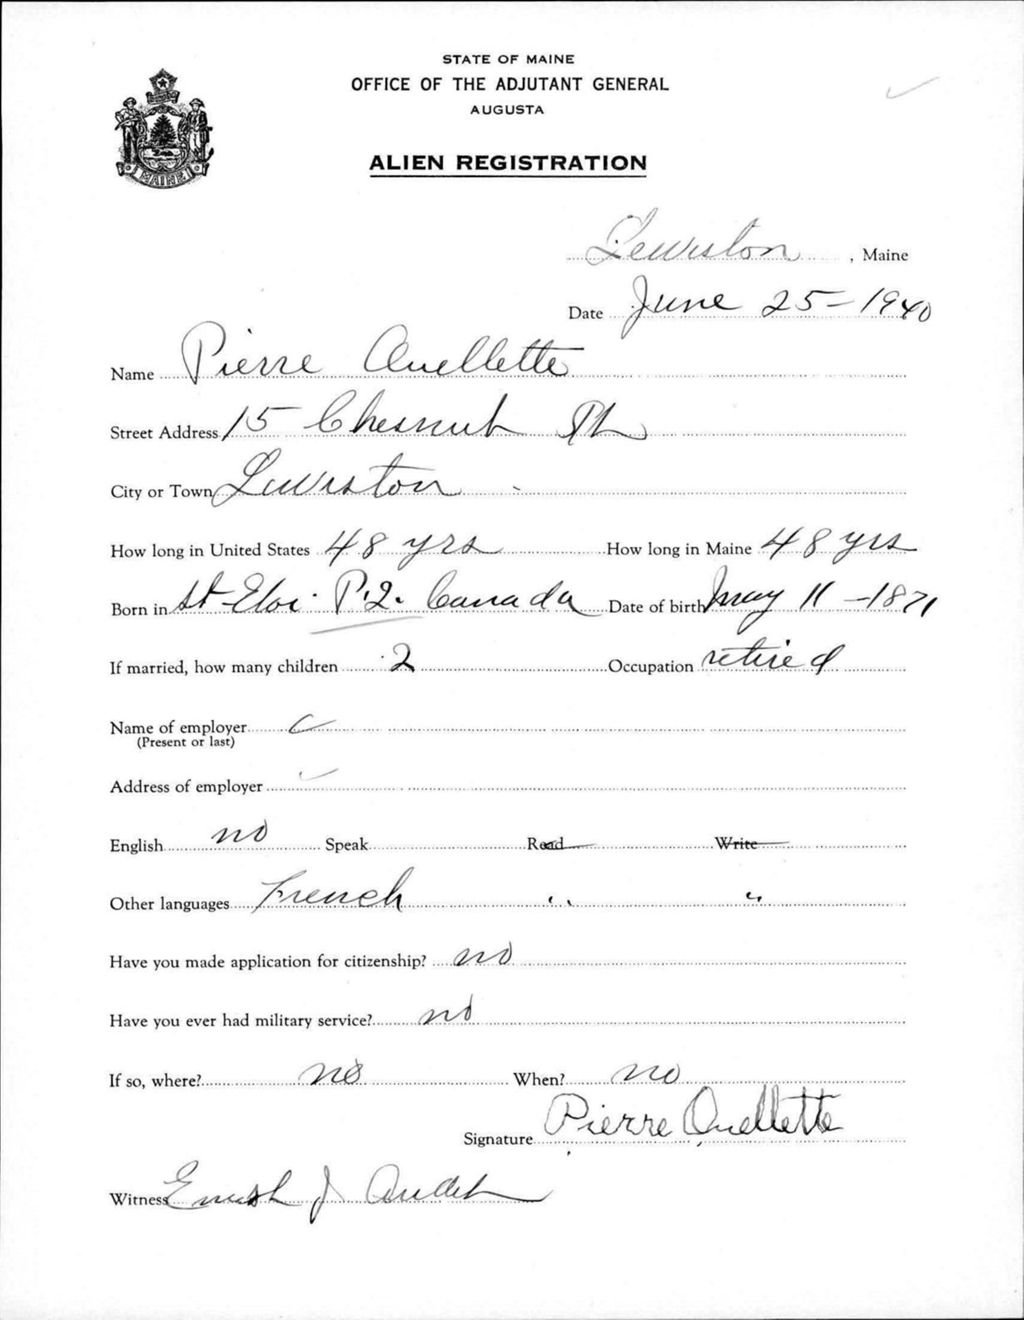 STATE OF MAINE
OFFICE OF THE ADJUTANT GENERAL
AUGUSTA
ALIEN REGISTRATION
MAINE
Lewiston, Maine
Date June 25-1940
Name Pierre Ouellette
Street Address 15 Chesnut Pl
City or Town Lewiston
How long in United States 48 yrs How long in Maine 48 yrs
Born in St-Eloi P.Q. Canada Date of birth May 11-1871
If married, how many children 2 Occupation retired
Name of employer
(Present or last)
Address of employer
English no Speak Read Write
Other languages French " "
Have you made application for citizenship? no
Have you ever had military service? no
If so, where? no When? no
Signature Pierre Ouellette
Witness J